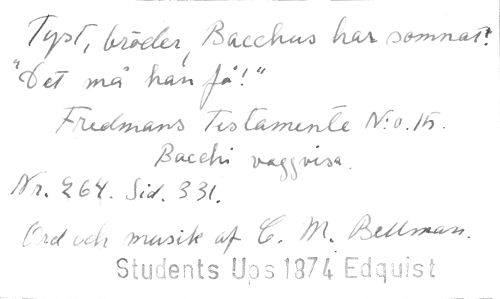 Tyst, bröder, Bacchus har somnat!
"Det må han få!"
Fredmans Testamente N:o 15.
Bacchi vaggvisa.
Nr. 264. Sid. 331.
Ord och musik af C. M. Bellman.
Students Ups 1874 Edquist